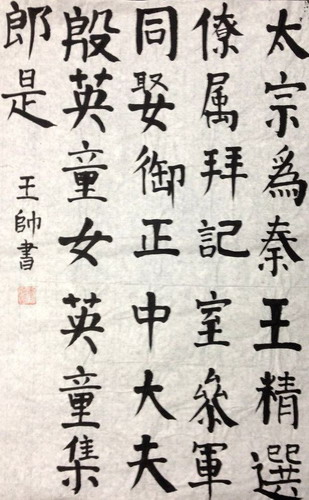 太宗爲秦王精選
僚属拜記室叅軍
同娶御正中大夫
殷英童女英童集
郎是
王帥書